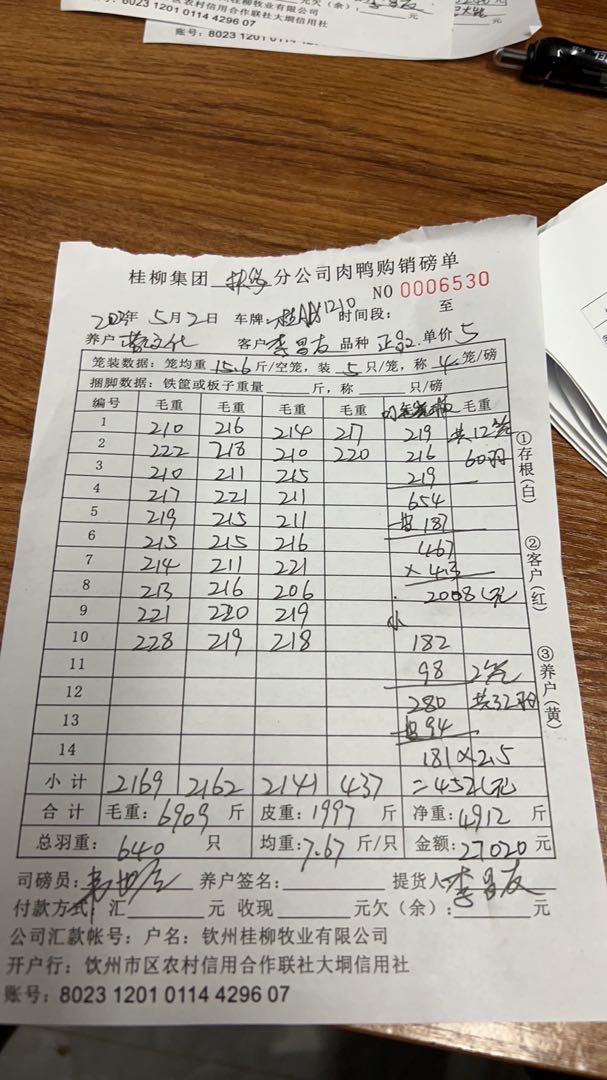 桂柳牧业有限公司 元欠（余）： 元
区农村信用合作联社大垌信用社
账号：8023 1201 0114 4296 07
桂柳集团 分公司肉鸭购销磅单
NO 0006530
年 5月2日 车牌： 时间段： 至
养户 客户 李昌友 品种 正品 单价 5
笼装数据：笼均重 15.6 斤/空笼，装 5 只/笼，称 4 笼/磅
捆脚数据：铁筐或板子重量 斤，称 只/磅
编号 毛重 毛重 毛重 毛重 毛重
1 210 216 214 217 219 共12笼
2 222 218 210 220 216 60羽
3 210 211 215 219
4 217 221 211 654
5 219 215 211 187
6 215 215 216 467
7 214 211 221 ×4.3
8 213 216 206 2008元
9 221 220 219 小
10 228 219 218 182
11 98 2笼
12 280 共32羽
13 94
14 181×2.5
小计 2169 2162 2141 437 =452元
合计 毛重：6909 斤 皮重：1997 斤 净重：4912 斤
总羽重：640 只 均重：7.67 斤/只 金额：27020 元
①存根(白)
②客户(红)
③养户(黄)
司磅员： 养户签名： 提货人 李昌友
付款方式：汇 元 收现 元欠（余）： 元
公司汇款帐号：户名：钦州桂柳牧业有限公司
开户行：钦州市区农村信用合作联社大垌信用社
账号：8023 1201 0114 4296 07